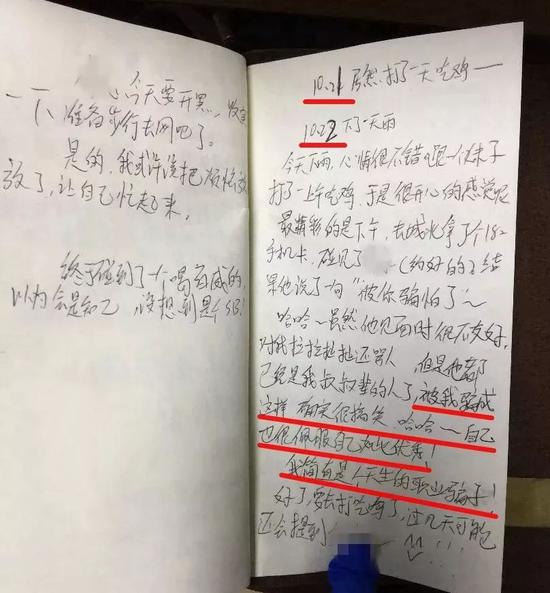 今天要开黑,收定
一下,准备步行去网吧了。
是的,我或许该把烦恼
放了,让自己忙起来。
终于碰到了一个喝药
以为会是知己,没想到是个SB!
10.21 居然打了一天吃鸡——
10.22 下了一天雨
今天下雨,心情很不错,跟一个妹子
打了一上午吃鸡,于是很开心的感觉呢
最精彩的是下午,去城北拿了个182
手机卡,碰见了 (约好的)结
果他说了句“被你骗怕了”~
哈哈~虽然他见面时很不友好,
对我拉拉扯扯还骂人 但是他都
已经是我叔叔辈的人了,被我骗成
这样 确实很搞笑,哈哈~自己
也很佩服自己如此优秀!
我简直是个天生的职业骗子!
好了,要去打吃鸡了,过几天可能
还会提到 ...